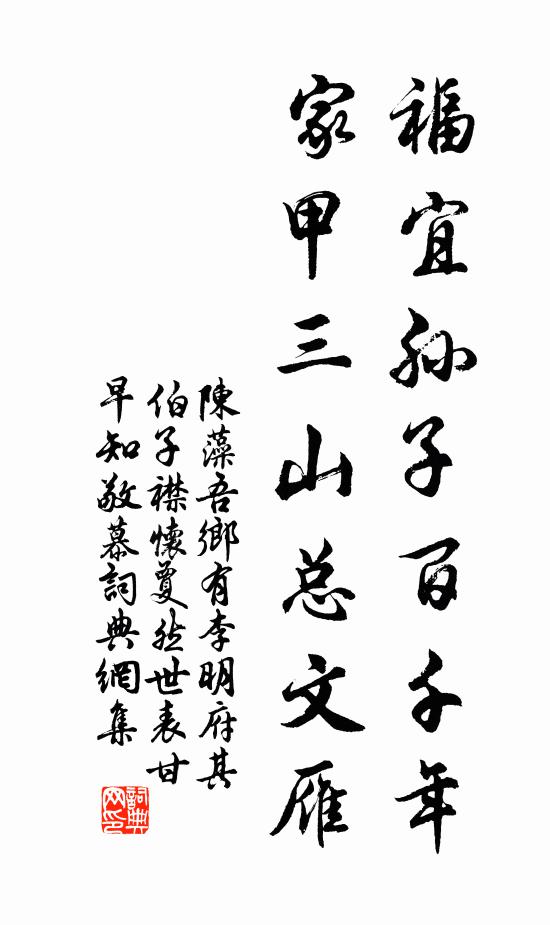 福宜孙子百千年
家甲三山总文雁
陳藻吾鄉有李明府其
伯子襟懷夐然世表甘
早知敬慕詞典網集
詞典网印